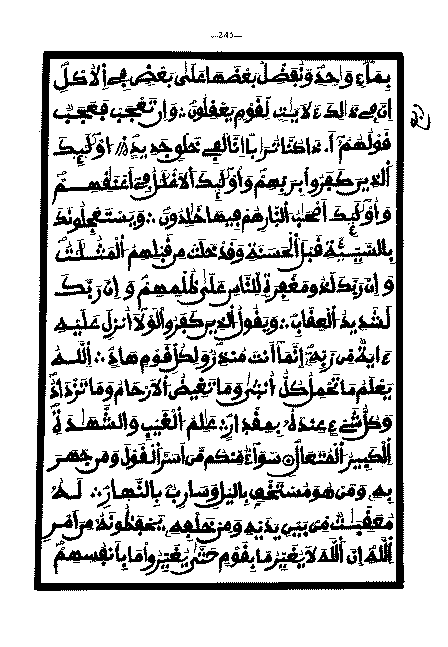 —245—
بِمَآءٍ وَٰحِدٍ وَنُفَضِّلُ بَعْضَهَا عَلَىٰ بَعْضٍ فِے اِ۬لُاكْلِ
إِنَّ فِے ذَٰلِكَ ءَلَايَٰتٍ لِّقَوْمٍ يَعْقِلُونَ ؞ وَإِن تَعْجَبْ فَعَجَبٌ
قَوْلُهُمُۥٓ أَ.ذَا كُنَّا تُرَٰباً اِنَّا لَفِے خَلْقٍ جَدِيدٍ ؞ اُوْلَٰٓئِكَ
اَ۬لذِينَ كَفَرُواْ بِرَبِّهِمْ وَأُوْلَٰٓئِكَ اَ۬لَاغْلَٰلُ فِےٓ أَعْنَٰقِهِمْ
وَأُوْلَٰٓئِكَ أَصْحَٰبُ اُ۬لنّ۪ارِ هُمْ فِيهَا خَٰلِدُونَ ؞ وَيَسْتَعْجِلُونَكَ
بِالسَّيِّئَةِ قَبْلَ اَ۬لْحَسَنَةِ وَقَدْ خَلَتْ مِن قَبْلِهِمُ اُ۬لْمَثُلَٰتُ
وَإِنَّ رَبَّكَ لَذُو مَغْفِرَةٍ لِّلنَّاسِ عَلَىٰ ظُلْمِهِمْ وَإِنَّ رَبَّكَ
لَشَدِيدُ اُ۬لْعِقَابِ ؞ وَيَقُولُ اُ۬لذِينَ كَفَرُواْ لَوْلَآ أُنزِلَ عَلَيْهِ
ءَايَةٌ مِّن رَّبِّهِۦٓ إِنَّمَآ أَنتَ مُنذِرٌ وَلِكُلِّ قَوْمٍ هَادٍ ؞ اِ۬للَّهُ
يَعْلَمُ مَا تَحْمِلُ كُلُّ أُنثَىٰ وَمَا تَغِيضُ اُ۬لَارْحَامُ وَمَا تَزْدَادُ
وَكُلُّ شَےْءٍ عِندَهُۥ بِمِقْدَارٍ ؞ عَٰلِمُ اُ۬لْغَيْبِ وَالشَّهَٰدَةِ
اِ۬لْكَبِيرُ اُ۬لْمُتَعَالِ ؞ سَوَآءٌ مِّنكُم مَّنْ أَسَرَّ اَ۬لْقَوْلَ وَمَن جَهَرَ
بِهِۦ وَمَنْ هُوَ مُسْتَخْفٍ بِالَّيْلِ وَسَارِبٌ بِالنَّهَارِ ؞ لَهُۥ
مُعَقِّبَٰتٌ مِّنۢ بَيْنِ يَدَيْهِ وَمِنْ خَلْفِهِۦ يَحْفَظُونَهُۥ مِنَ اَمْرِ
اِ۬للَّهِ إِنَّ اَ۬للَّهَ لَا يُغَيِّرُ مَا بِقَوْمٍ حَتَّىٰ يُغَيِّرُواْ مَا بِأَنفُسِهِمْ